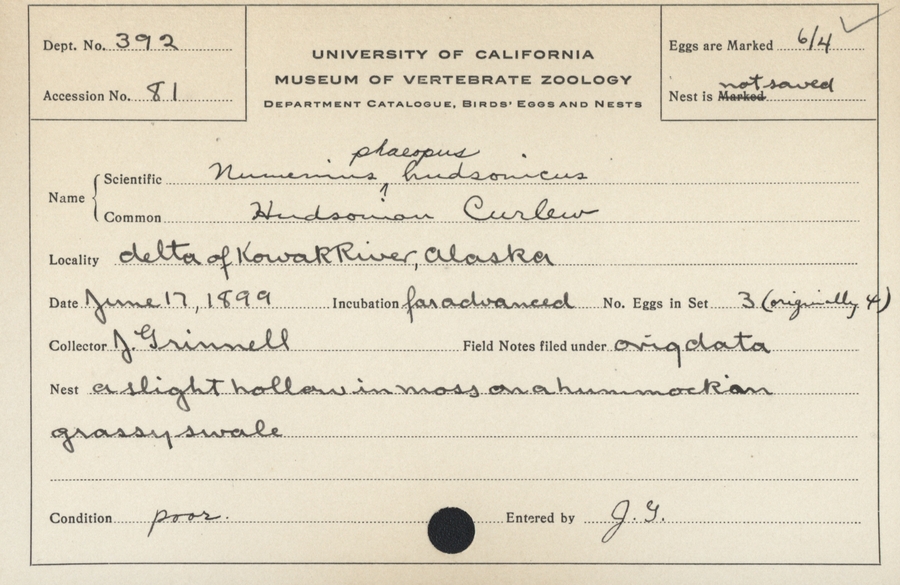 Dept. No. 392
Accession No. 81
UNIVERSITY OF CALIFORNIA
MUSEUM OF VERTEBRATE ZOOLOGY
DEPARTMENT CATALOGUE, BIRDS' EGGS AND NESTS
Eggs are Marked 6/4
not saved
Nest is Marked
phaeopus
Name Scientific Numenius ^ hudsonicus
Common Hudsonian Curlew
Locality delta of Kowak River, Alaska
Date June 17, 1899 Incubation far advanced No. Eggs in Set 3 (originally 4)
Collector J. Grinnell Field Notes filed under orig data
Nest a slight hollow in moss on a hummock in
grassy swale
Condition poor. Entered by J. G.